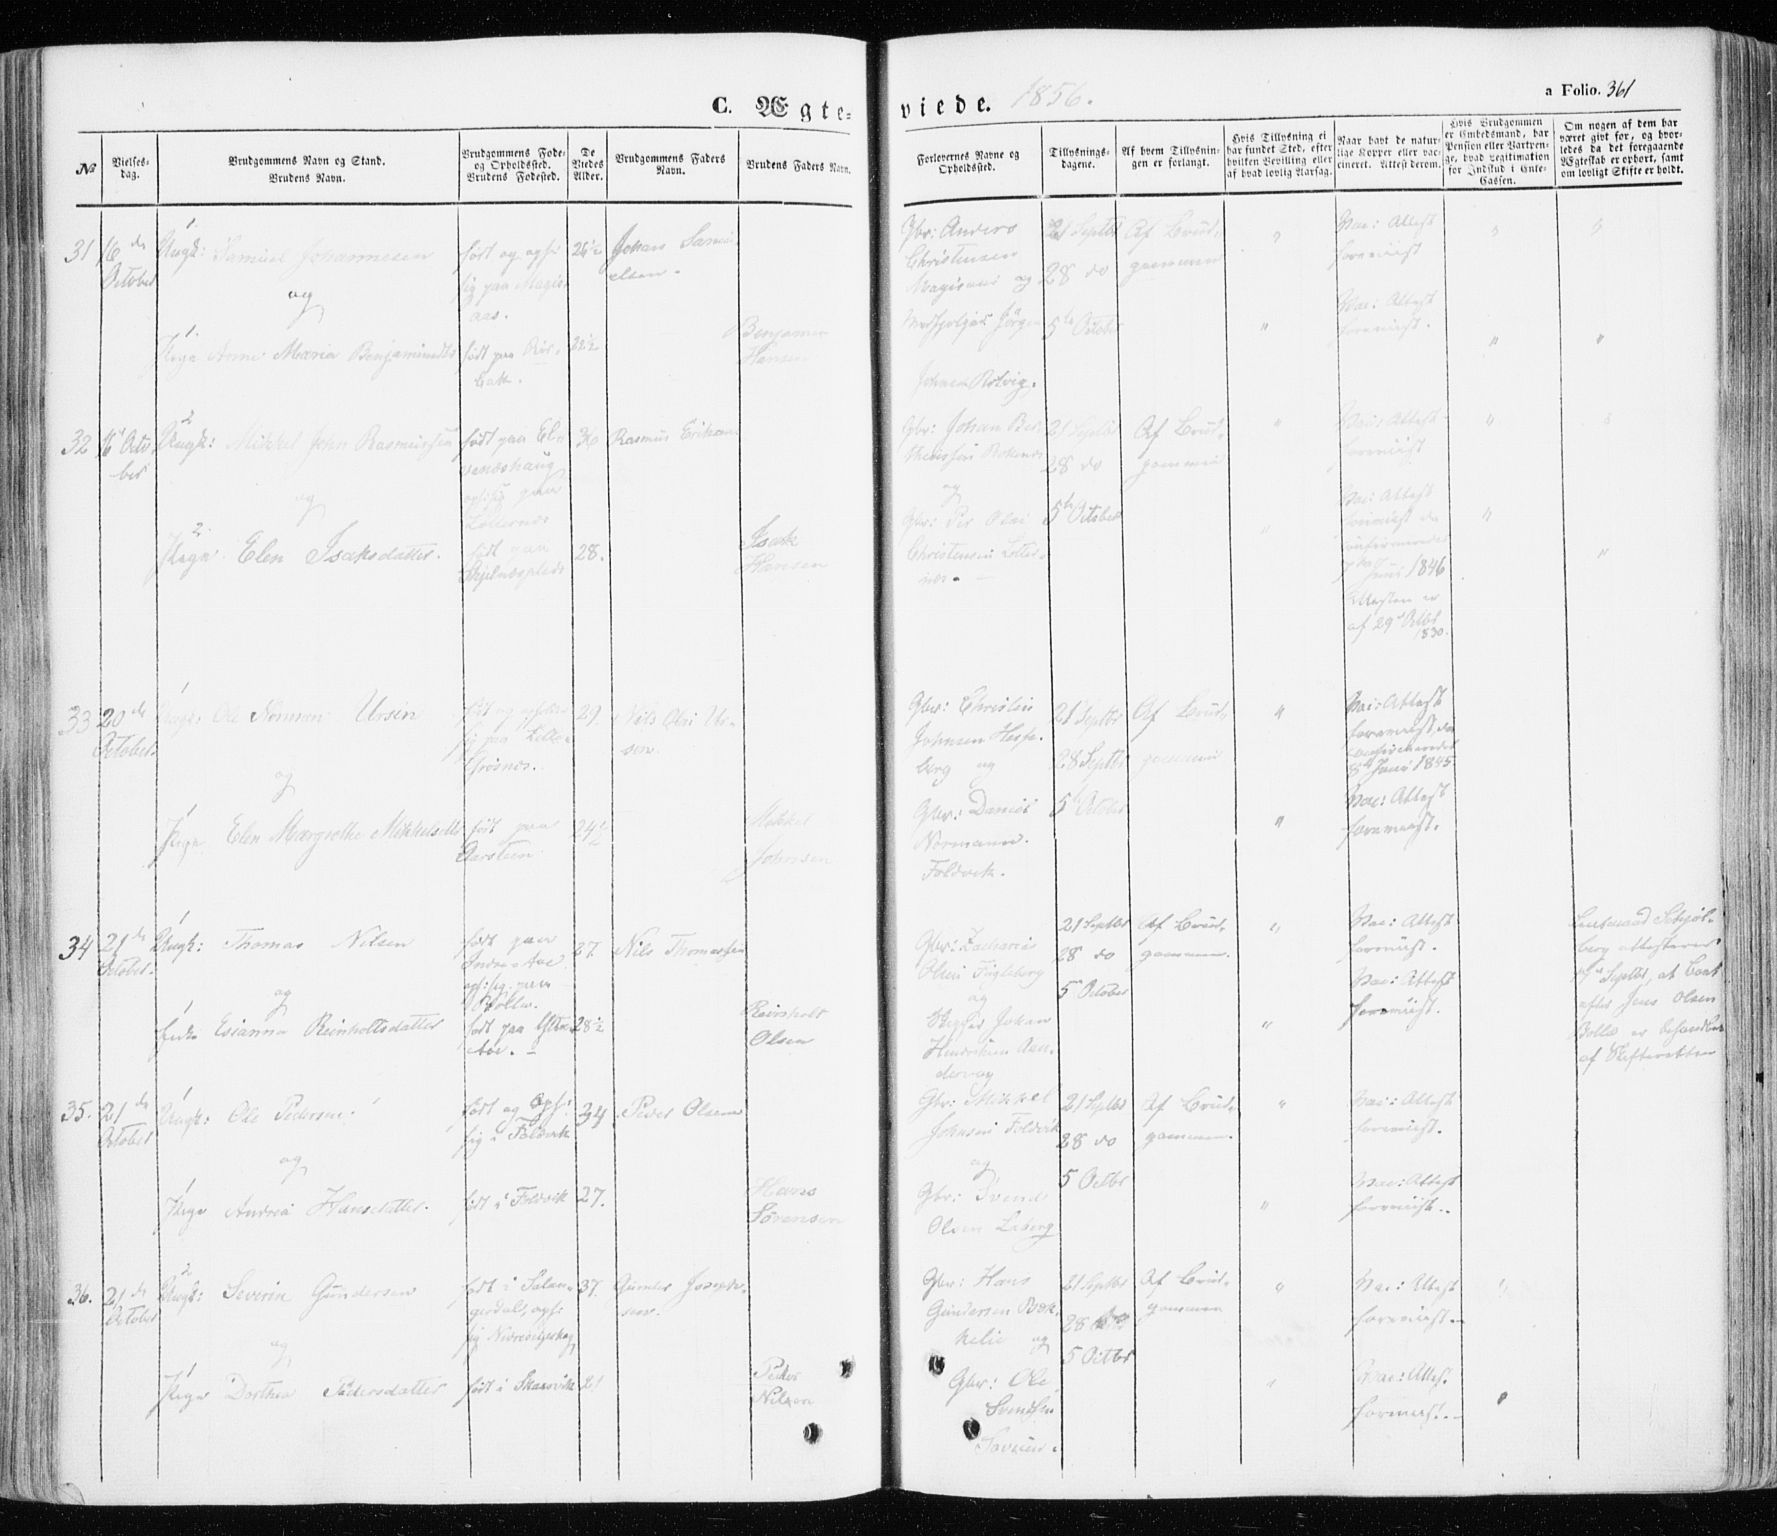 C. Ægte-
viede. 1856.
a Folio. 361
No
Vielses-
dag.
Brudgommens Navn og Stand.
Brudens Navn.
Brudgommens Føde-
og Opholdssted.
Brudens Fødested.
De
Viedes
Alder.
Brudgommens Faders
Navn.
Brudens Faders Navn.
Forlovernes Navne og
Opholdssted.
Tillysnings-
dagene.
Af hvem Tillysnin-
gen er forlangt.
Hvis Tillysning ei
har fundet Sted, efter
hvilken Bevilling eller
af hvad lovlig Aarsag.
Naar havt de natur-
lige Kopper eller vac-
cineret. Attest derom.
Hvis Brudgommen
er Embedsmand, har
Pension eller Vartpen-
ge, hvad Legitimation
for Indskud i Enke-
Cassen.
Om nogen af dem har
været gift før, og hvor-
ledes da det foregaaende
Ægteskab er ophørt, samt
om lovligt Skifte er holdt.
31 16 de
October
Ungk: Samuel Johannesen
og
Pige Anne Maria Benjaminsdtr
født og oph:
sig paa
aas.
født paa
bak.
26½
22½
Johans Samu-
elsen.
Benjamin
Hansen
Gbr: Anders
Christensen
og
Jørgen
Johnsen
21 Septbr
28 do
5te October
Af Brud-
gommen
"
"
Vac: Attest
foreviist
Vac: Attest
foreviist.
"
"
"
"
32 16 Octo-
ber
Ungk: Mikkel John Rasmussen
og
Pige Elen Isaksdatter.
født paa El-
veneshaug
oph: sig paa
født paa
36
28.
Rasmus Eriksen
Isak
Hansen
Gbr: Johan
og
Gbr: Per Olai
Christensen
21 Septbr
28 do
5te October
Af Brud-
gommen
"
"
Vac: Attest
foreviist
Vac: Attest
foreviist da
confirmeret
7de Juni 1846
Attesten er
af 29 Octbr
1830.
"
"
"
33 20 de
October.
Ungk: Ole Norman Ursin
og
Pige Elen Margrethe Mikkelsdtr
født og opholder
sig paa Lille-
født paa
Aarsteen
29.
24½
Nils Olai Ur-
sin.
Mikkel
Johnsen
Gbr: Christen
Johnsen Hesse-
berg og
Gbr: Daniel
Normann
Foldvik.
21 Septbr
28 Septbr
5 October
Af Brud-
gommen
"
"
Vac: Attest
foreviist, da
confirmeret
8de Juni 1845
Vac: Attest
foreviist.
34 21 de
October.
Ungk: Thomas Nilsen
og
Enke Esianna Reinholtsdatter
født paa
Indre Aae
oph: sig paa
Bolle.
født paa Ytre
Aae.
27.
28½
Nils Thomassen
Reinholt
Olsen
Gbr: Zacharias
Olsen Fugleberg
og
Johan
Hendriksen Aan-
dervag
21 Septbr
28 do
5 October
Af Brud-
gommen.
"
"
Vac: Attest
foreviist.
Vac: Attest
foreviist.
Lensmand
attesterer
Septbr, at Boet
efter Jens Olsen
Bolle er behandlet
af Skifteretten
35. 21 de
October
Ungk: Ole Pedersen
og
Pige Andrea Hansdatter.
født og Oph:
sig i Foldvik
født i Foldvik
34
27.
Peder Olsen
Hans
Sørensen
Gbr: Mikkel
Johnsen Foldvik
og
Gbr: Svend
Olsen Laberg
21 Septbr
28 do
5 Octbr
Af Brud-
gommen.
"
"
Vac: Attest
foreviist.
Vac: Attest
foreviist.
36. 21 de
October
Ungk: Severin Gundersen
og
Pige Dorthea Pedersdatter
født i Salan-
gerdal, oph:
sig
født i Skarvik
37.
21
Gunder Joseph-
sen.
Peder
Nilsen
Gbr: Hans
Gundersen Bak-
kelie og
Gbr: Ole
Svendsen
21 Septbr
28 do
5 Octbr
Af Brud-
gommen
"
"
Vac: Attest
foreviist.
Vac: Attest.
foreviist.
"